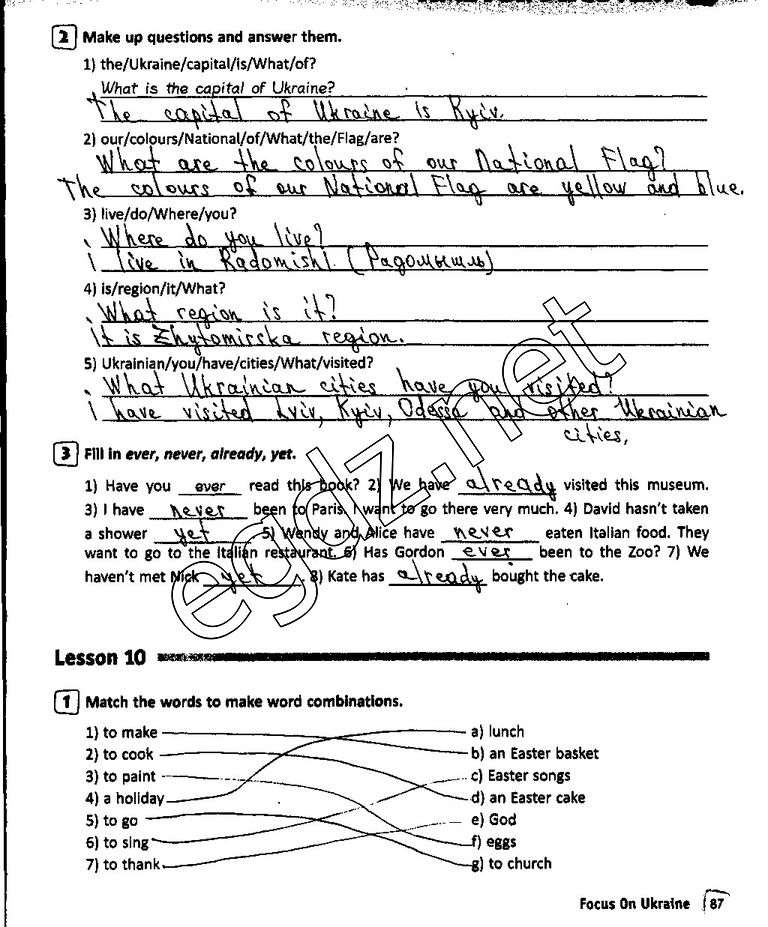 2 Make up questions and answer them.
1) the/Ukraine/capital/is/What/of?
What is the capital of Ukraine?
The capital of Ukraine is Kyiv.
2) our/colours/National/of/What/the/Flag/are?
What are the colours of our National Flag?
The colours of our National Flag are yellow and blue.
3) live/do/Where/you?
Where do you live?
I live in Radomishl. (Радомышль)
4) is/region/it/What?
What region is it?
It is Zhytomirska region.
5) Ukrainian/you/have/cities/What/visited?
What Ukrainian cities have you visited?
I have visited Lviv, Kyiv, Odessa and other Ukrainian
cities,
3 Fill in ever, never, already, yet.
1) Have you ever read this book? 2) We have already visited this museum.
3) I have never been to Paris. I want to go there very much. 4) David hasn't taken
a shower yet. 5) Wendy and Alice have never eaten Italian food. They
want to go to the Italian restaurant. 6) Has Gordon ever been to the Zoo? 7) We
haven't met Nick yet. 8) Kate has already bought the cake.
egdz.net
Lesson 10
1 Match the words to make word combinations.
1) to make a) lunch
2) to cook b) an Easter basket
3) to paint c) Easter songs
4) a holiday d) an Easter cake
5) to go e) God
6) to sing f) eggs
7) to thank g) to church
Focus On Ukraine 87